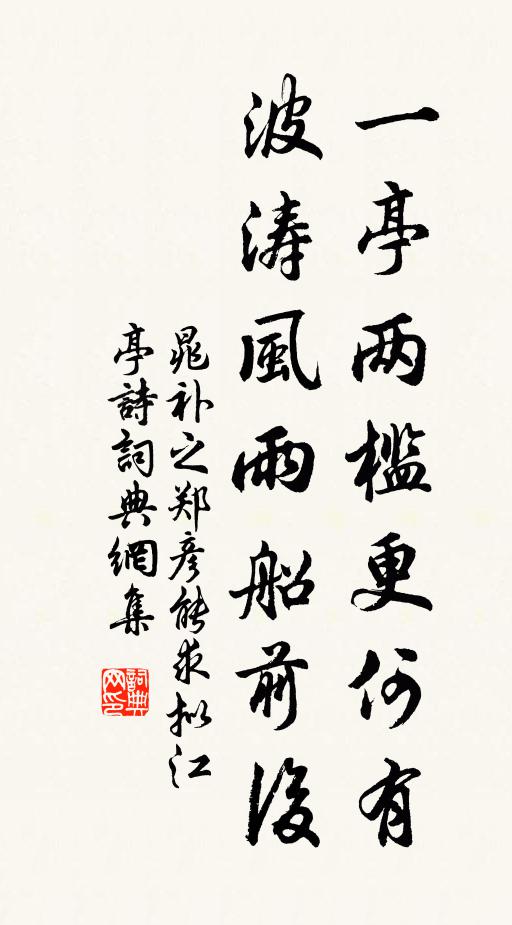 一亭两檻更何有
波涛風雨船前後
晁补之郑彦能求拟江
亭詩詞典網集
詞典网印